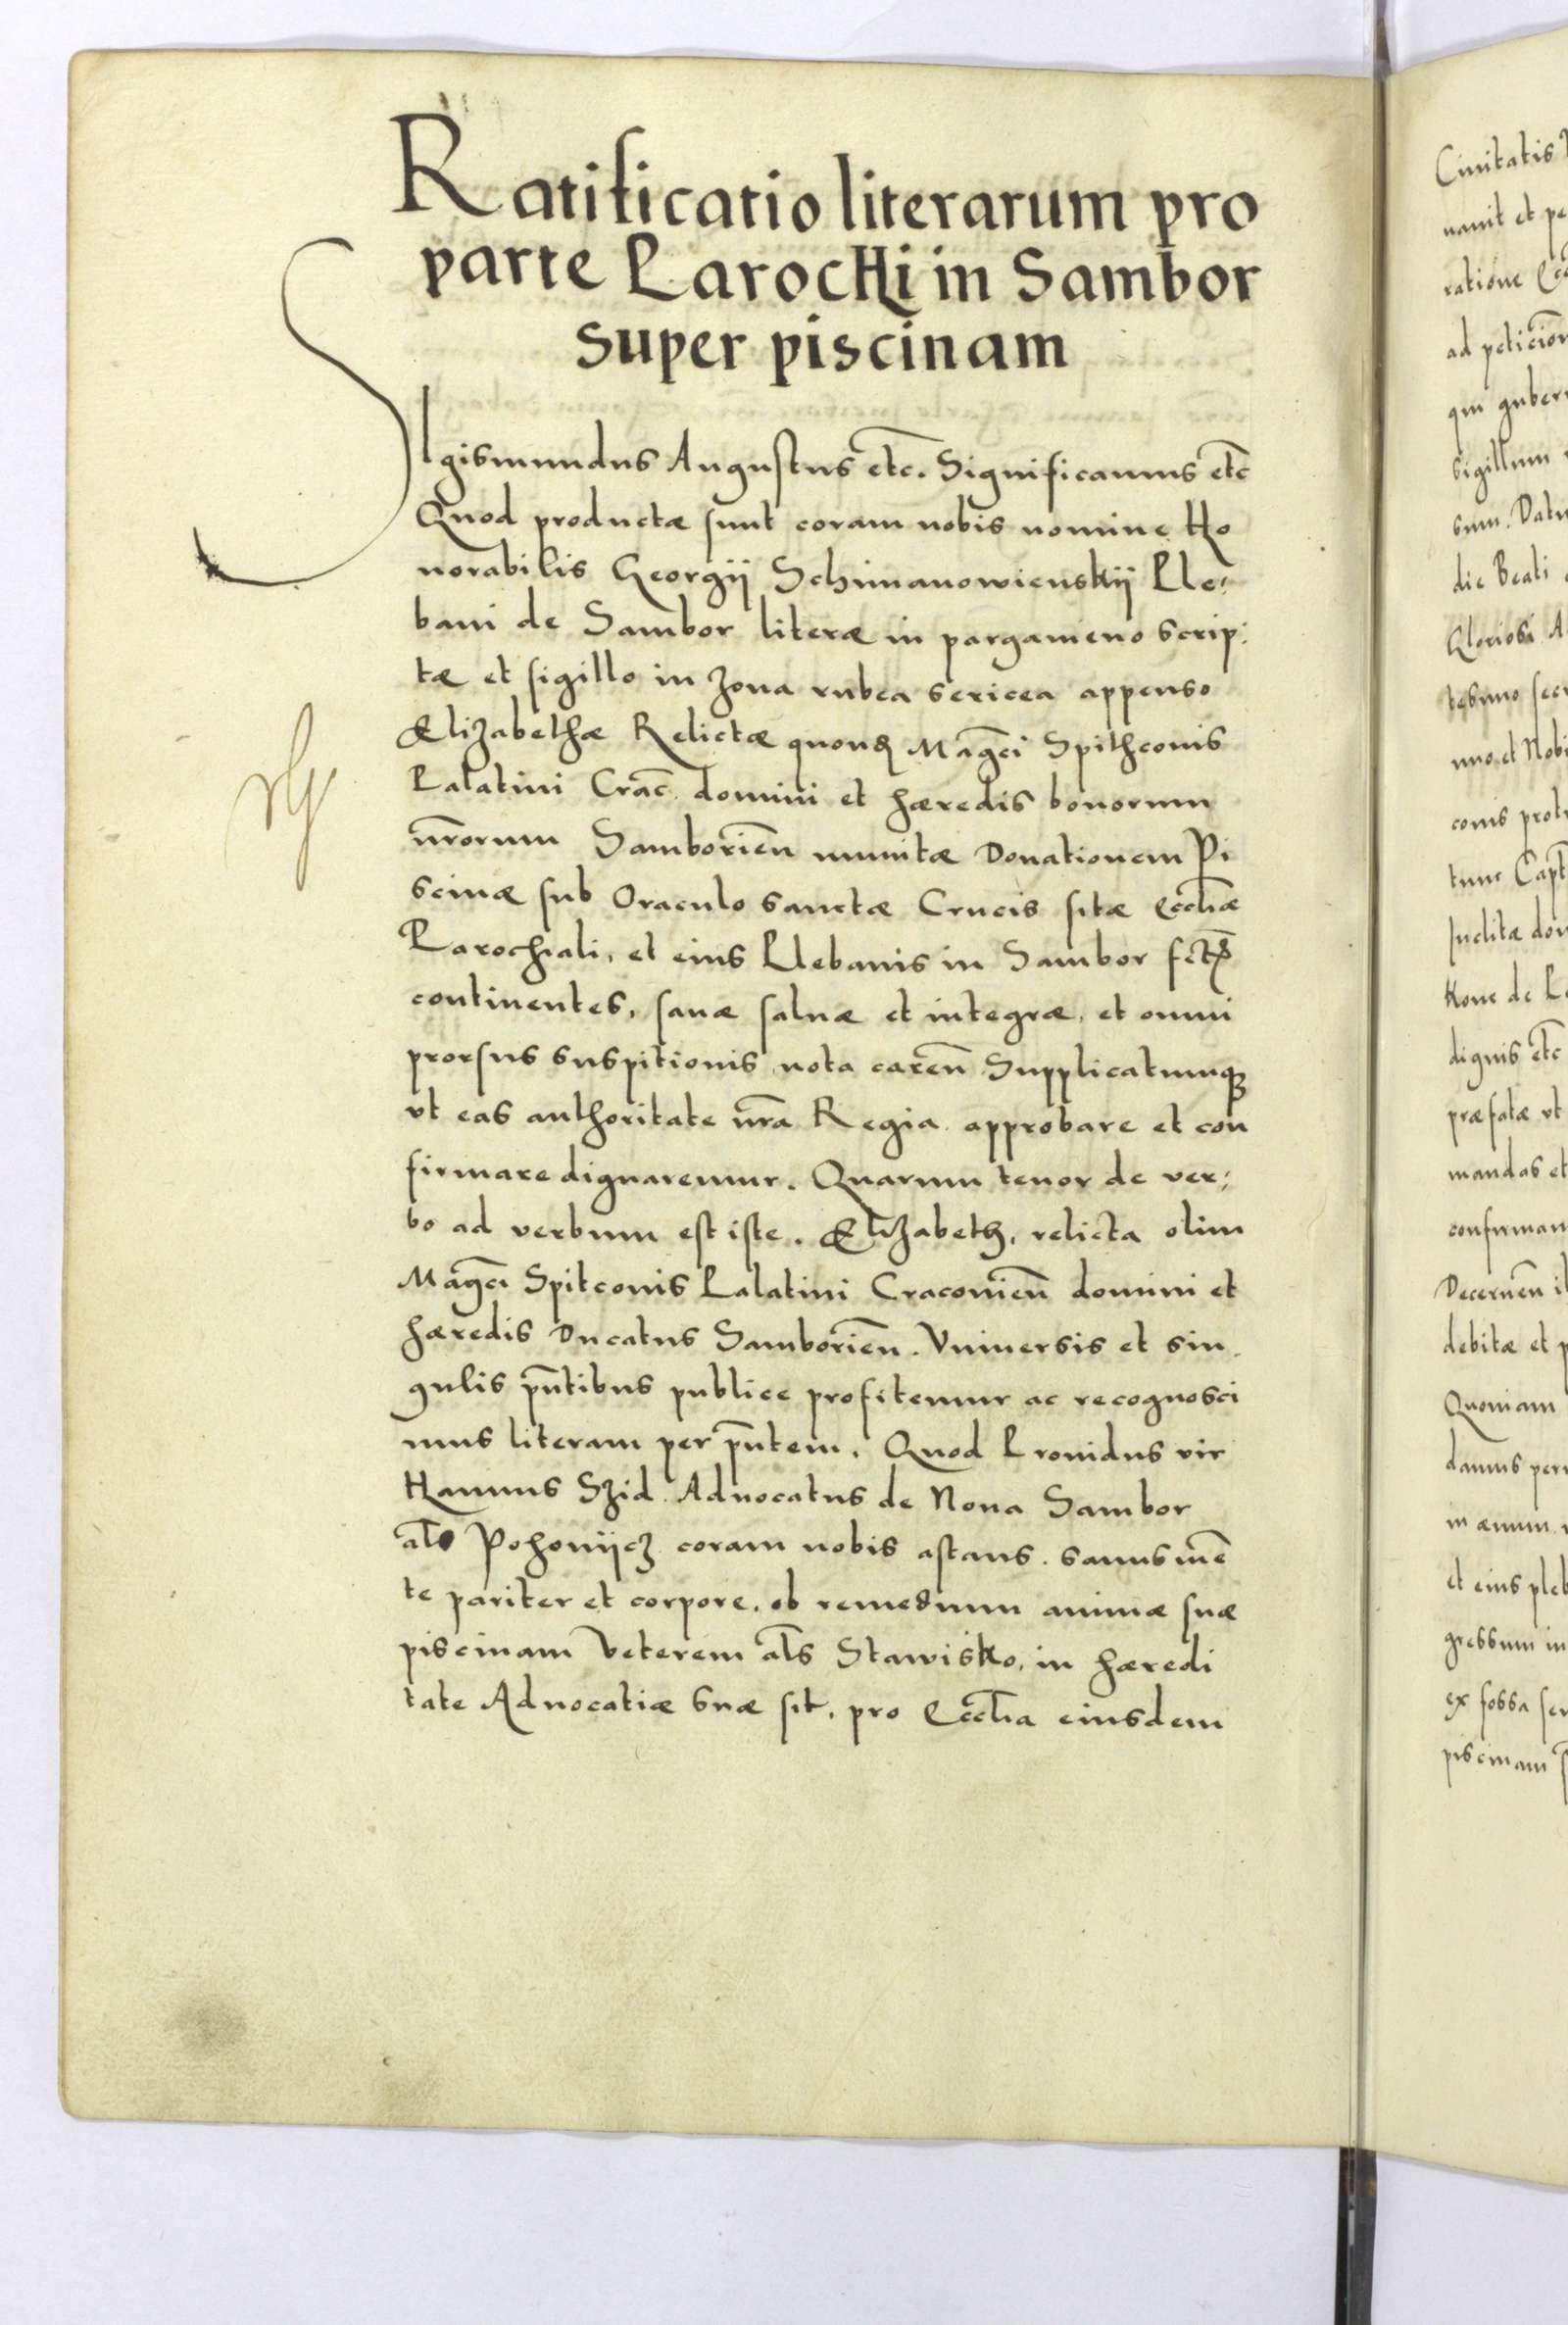 Ratificatio literarum pro
parte Parochi in Sambor
super piscinam
SIgismundus Augustus etc. Significamus etc
Quod productæ sunt coram nobis nomine Ho
norabilis Georgij Schimanowienskij Ple:
bani de Sambor literæ in pargameno scrip:
tæ et sigillo in zona rubea sericea appenso
Elizabethæ Relictæ quond Magci Spithconis
Palatini Crac. domini et hæredis bonorum
nrorum Samborien munitæ Donationem Pi
scinæ sub Oraculo sanctæ Crucis sitæ Eccliæ
Parochiali, et eius Plebanis in Sambor
continentes, sanæ saluæ et integræ, et omni
prorsus suspitionis nota caren Supplicatumq
vt eas authoritate nra Regia approbare et con
firmare dignaremur. Quarum tenor de ver:
bo ad verbum est iste. Elizabeth, relicta olim
Magci Spitconis Palatini Cracouien domini et
hæredis Ducatus Samborien. Vniuersis et sin
gulis pntibus publice profitemur ac recognosci
mus literam per pntem. Quod Prouidus vir
Hannus Szid Aduocatus de Noua Sambor
als Pohonijcz coram nobis astans. sanus men
te pariter et corpore. ob remedium animæ suæ
piscinam Veterem als Stawisko, in hæredi
tate Aduocatiæ suæ sit, pro Ecclia eiusdem
Ciuitatis
nauit et pe
ratione
ad peticion
qui guber
sigillum
sum. Datu
die Beati
Gloriosi A
tesimo sec
nno et Nobi
conis prot
tunc Capt
Inclitæ dom
Kone de
dignis etc
præfatæ vt
mandas et
confirman
Decernen
debitæ et p
Quoniam
damus per
in æuum
et eius pleb
gressum in
ex fossa
piscinam